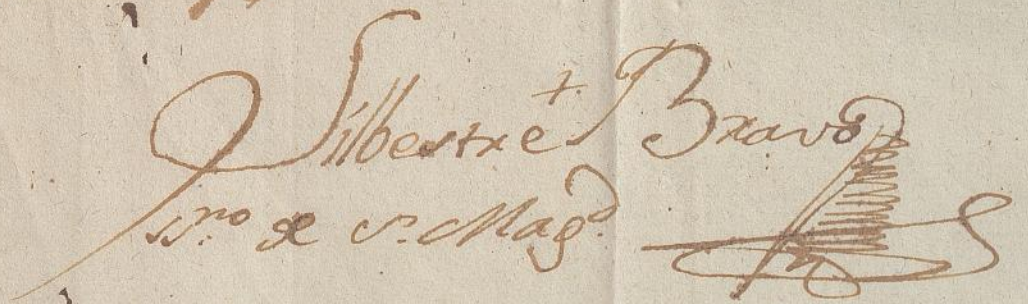 Silbestre + Bravo
ss.no de S. Mag.d